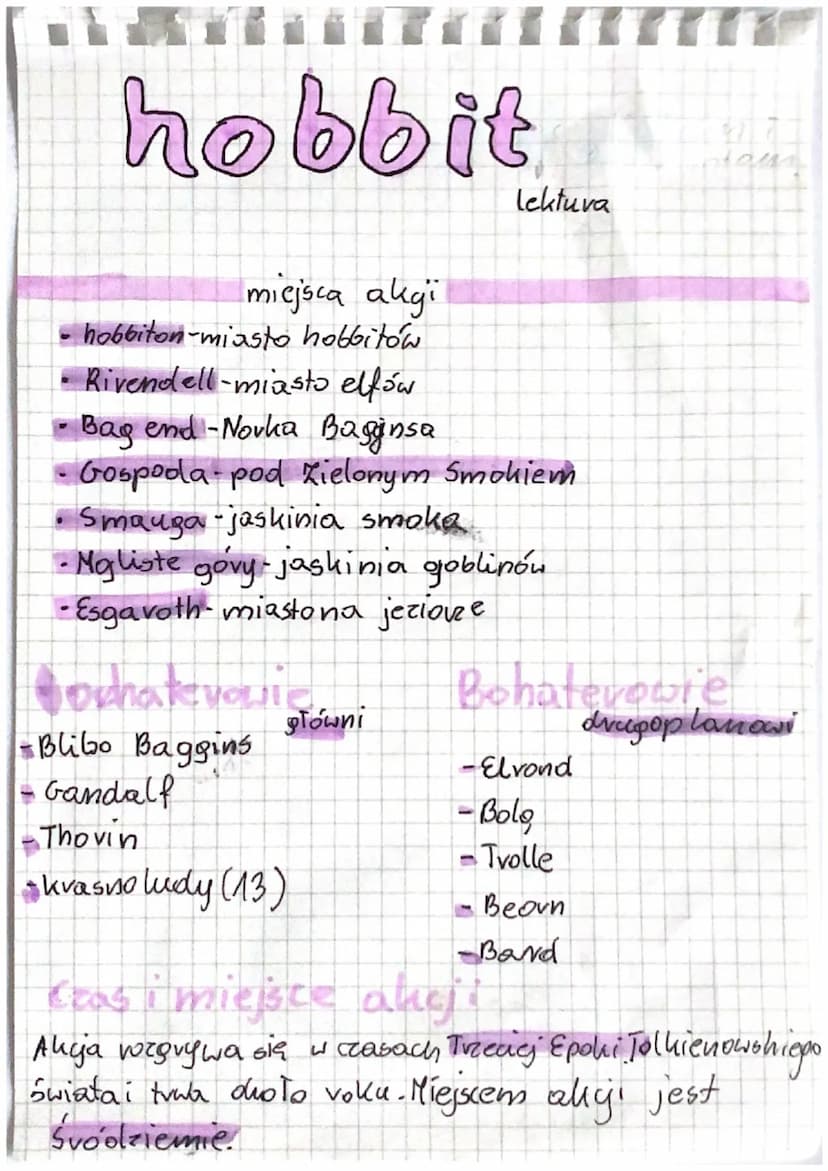 hobbit
lektura
miejsca akcji
• hobbiton - miasto hobbitów
• Rivendell - miasto elfów
• Bag end - Norka Bagginsa
• Gospoda - pod Zielonym Smokiem
• Smauga - jaskinia smoka
• Mgliste góry - jaskinia goblinów
• Esgaroth - miasto na jeziorze
Bohaterowie
główni
- Blibo Baggins
- Gandalf
- Thorin
- krasnoludy (13)
Bohaterowie
drugoplanowi
- Elrond
- Bolg
- Trolle
- Beorn
- Bard
Czas i miejsce akcji
Akcja rozgrywa się w czasach Trzeciej Epoki Tolkienowskiego
świata i trwa około roku. Miejscem akcji jest
Śródziemie.